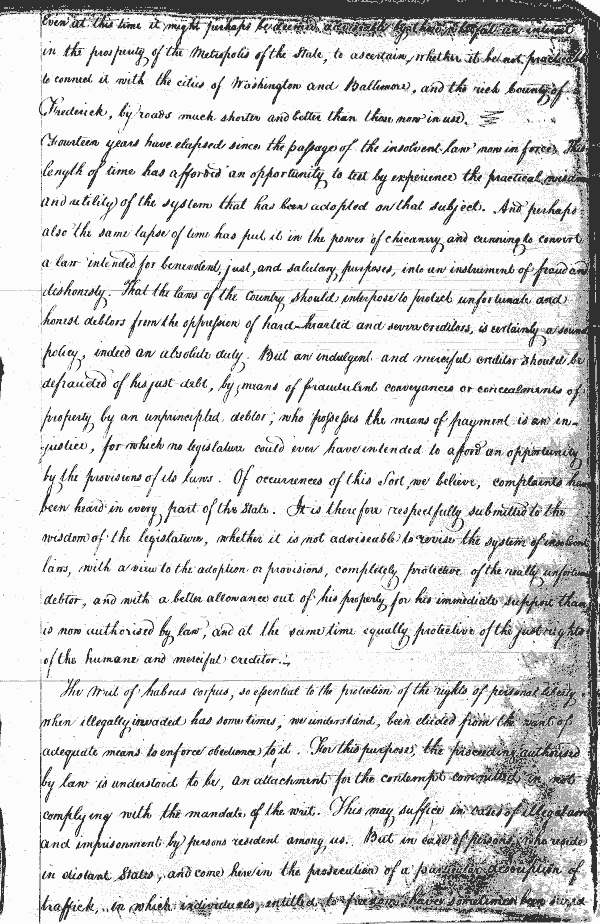 Even at this time it might perhaps be deemed adviseable by those who feel an interest
in the prosperity of the Metropolis of the State, to ascertain, whether it be not practicable
to connect it with the cities of Washington and Baltimore, and the rich County of
Frederick, by roads much shorter and better than those now in use.
Fourteen years have elapsed since the passage of the insolvent law now in force. This
length of time has afforded an opportunity to test by experience the practical wisdom
and utility of the system that has been adopted on that subject. And perhaps
also the same lapse of time has put it in the power of chicanery and cunning to convert
a law intended for benevolent, just, and salutary purposes, into an instrument of fraud and
dishonesty. That the laws of the Country should interpose to protect unfortunate and
honest debtors from the oppression of hard-hearted and severe creditors, is certainly a sound
policy, indeed an absolute duty. But an indulgent and merciful creditor should be
defrauded of his just debt, by means of fraudulent conveyances or concealments of
property by an unprincipled debtor, who possesses the means of payment is an in-
justice, for which no legislature could ever have intended to afford an opportunity
by the provisions of its laws. Of occurrences of this Sort, we believe, complaints have
been heard in every part of the State. It is therefore respectfully submitted to the
wisdom of the legislature, whether it is not adviseable to revise the system of insolvent
laws, with a view to the adoption or provisions, completely protective of the really unfortunate
debtor, and with a better allowance out of his property for his immediate support than
is now authorised by law, and at the same time equally protective of the just rights
of the humane and merciful creditor.
The writ of habeas corpus, so essential to the protection of the rights of personal liberty
when illegally invaded has sometimes, we understand, been elided from the want of
adequate means to enforce obedience to it. For this purpose, the proceeding authorised
by law is understood to be, an attachment for the contempt committed in not
complying with the mandate of the writ. This may suffice in cases of illegal arrest
and imprisonment by persons resident among us. But in case of persons, who reside
in distant States, and come here in the prosecution of a particular description of
traffick, in which individuals, entitled to freedom, have sometimes been